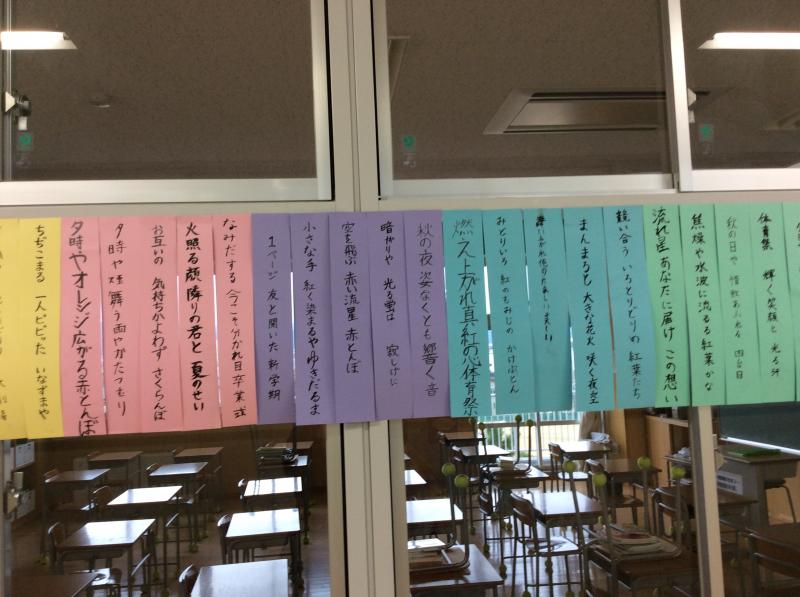 体育祭 輝く笑顔と光る汗
秋の日や
焦燥や水波に流るる紅葉かな
流れ星あなたに届けこの想い
競い合ういろとりどりの紅葉たち
まんまると大きな花火咲く夜空
みどりいろ紅のもみじのかけぶとん
燃え上がれ真紅の心体育祭
秋の夜姿なくとも響く音
暗がりや光る蛍は寂しげに
空を飛ぶ赤い流星赤とんぼ
小さな手紅く染まるやゆきだるま
1ページ友と開いた新学期
なみだする今こそ分かれ目卒業式
火照る頬隣りの君と夏のせい
お互いの気持ちかよわずさくらんぼ
夕時や
夕時やオレンジ広がる赤とんぼ
ちぢこまる一人ビビったいなずまや